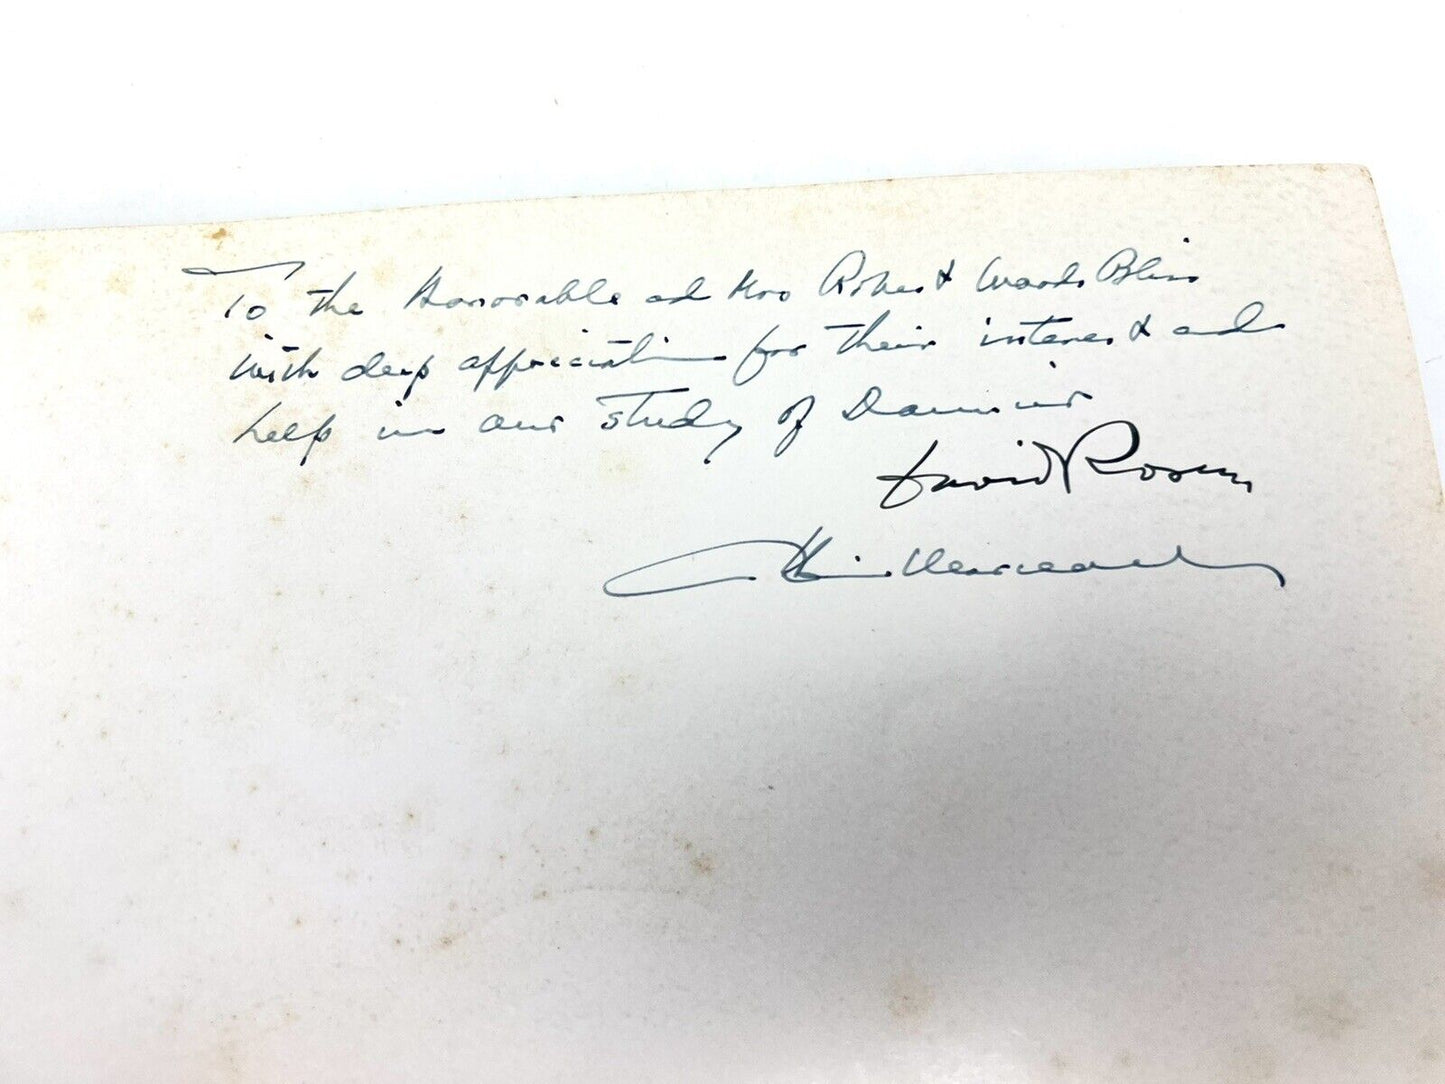 To the Honorable and Mrs Robert Woods Bliss
with deep appreciation for their interest and
help in our study of Daumier
David Rosen
Henri Marceau